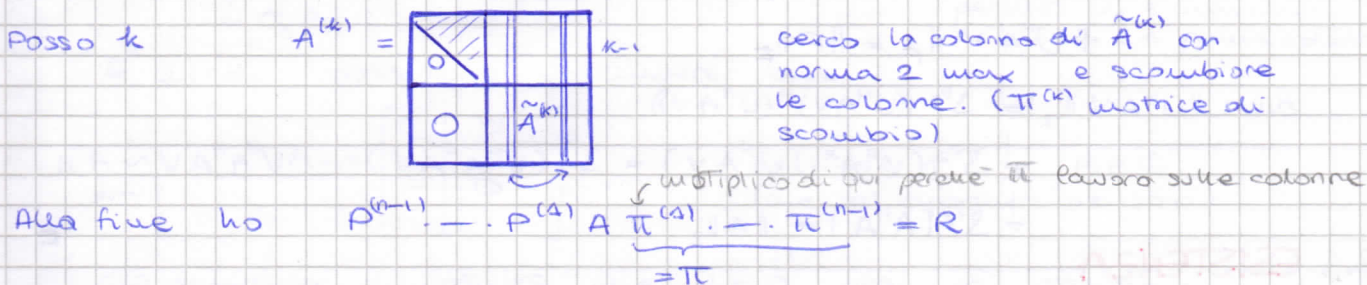 Passo k A^(k) = k-1
cerco la colonna di Ã^(k) con
norma 2 max e scambiare
le colonne. (Π^(k) matrice di
scambio)
O
O Ã^(k)
moltiplico di qui perché Π lavora sulle colonne
Alla fine ho P^(n-1) · — · P^(1) A Π^(1) · — · Π^(n-1) = R
= Π